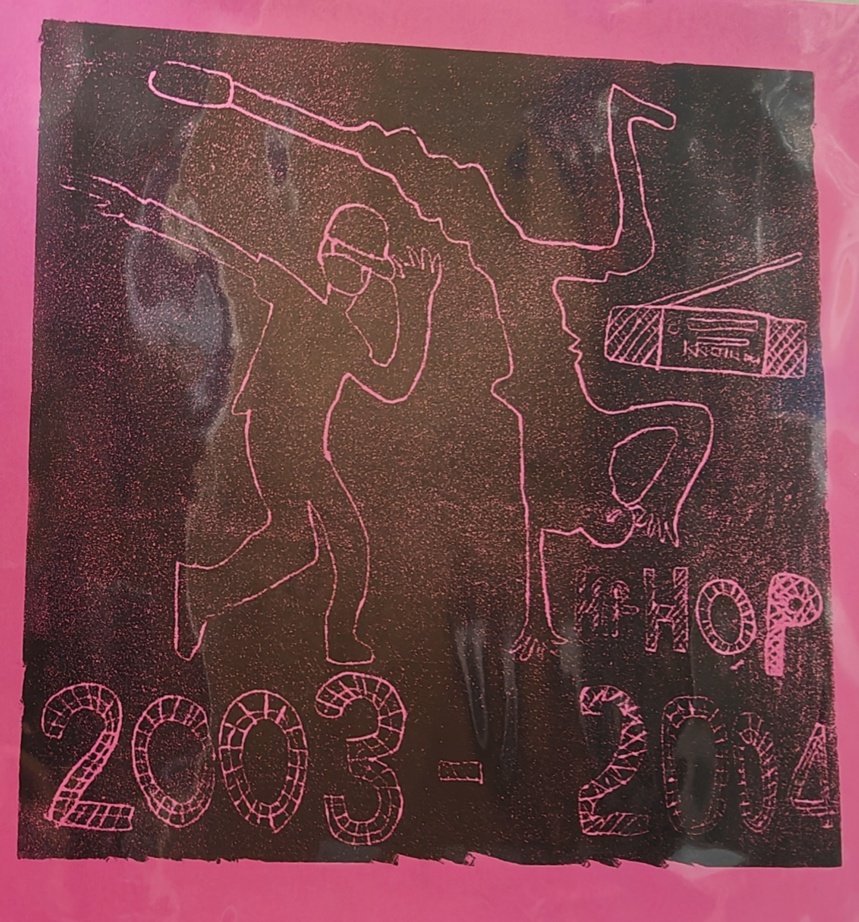 HIP-HOP
2003 - 2004